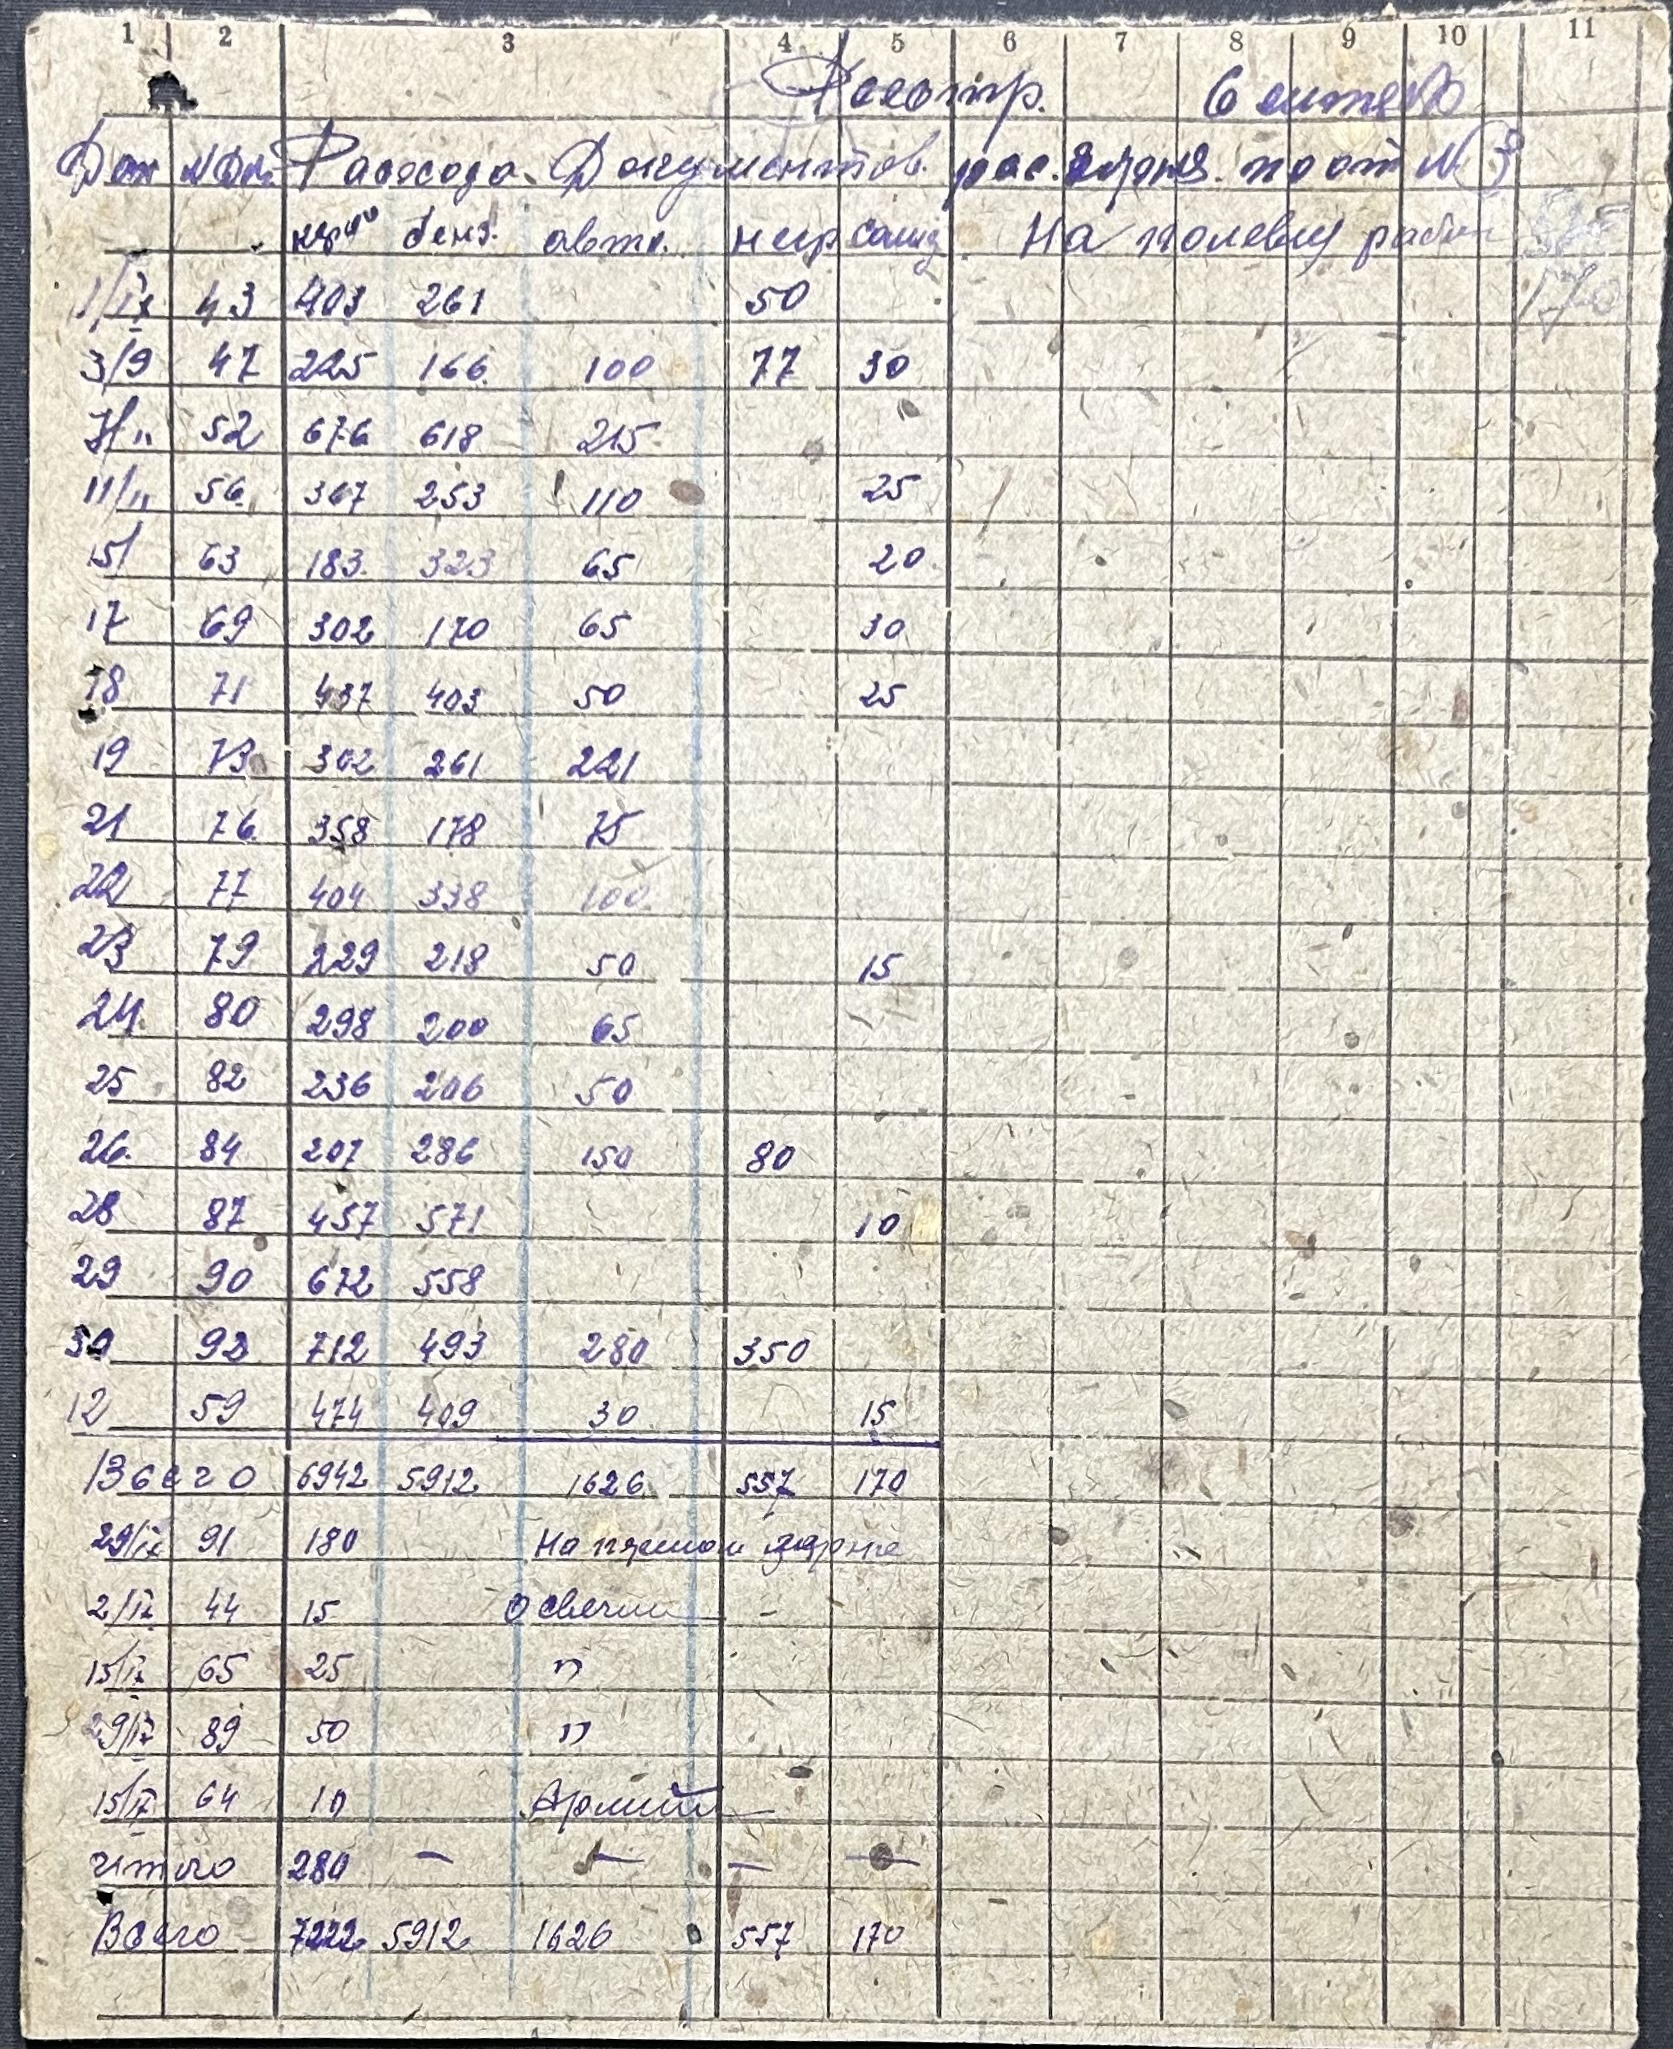 1 2 3 4 5 6 7 8 9 10 11
Реестр.
Расхода Документов. по от № 3
бенз. автл. На полевые
1/IX 43 403 261 50 170
3/9 47 225 166 100 77 30
7/" 52 676 618 215
11/" 56 367 253 110 25
15/ 63 183 323 65 20
17 69 302 170 65 30
18 71 437 403 50 25
19 73 302 261 221
21 76 358 178 75
22 77 404 338 100
23 79 229 218 50 15
24 80 298 200 65
25 82 236 206 50
26 84 207 286 150 80
28 87 457 571 10
29 90 672 558
30 92 712 493 280 350
12 59 474 409 30 15
Всего 6942 5912 1626 557 170
29/IX 91 180 На
2/IX 44 15 Освещ
15/IX 65 25 "
29/IX 89 50 "
15/IX 64 10
итого 280 — — — —
Всего 7222 5912 1626 557 170